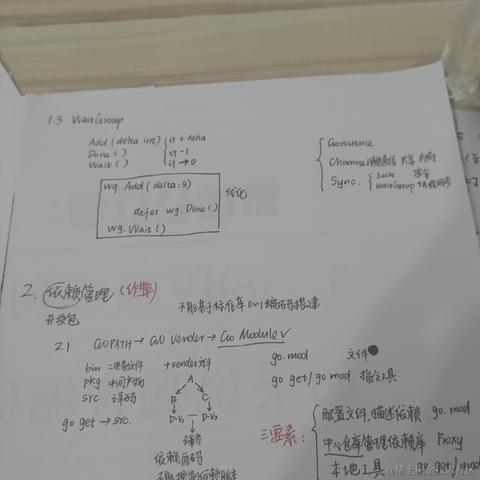 1.5 WaitGroup
Add(delta int) it + delta
Done() it -1
Wait() it → 0
wg.Add(delta:5)
defer wg.Done()
wg.Wait()
优化
Goroutine
Channel 通信 共享 内存
Sync. Lock 安全
WaitGroup 协程同步
2. 依赖管理
开发包
不能基于标准库 0~1 编码搭建
2.1 GOPATH → GO Vendor → Go Module √
bin 二进制文件
pkg 中间产物
src 源码
go get → src.
+ vendor 文件
A
B C
D-V1 — D-V2
依赖源码
go.mod 文件
go get/go mod 指令工具
三要素:
配置文件,描述依赖 go.mod
中心仓库管理依赖库 Proxy
本地工具 go get/mod
@稀土掘金技术社区